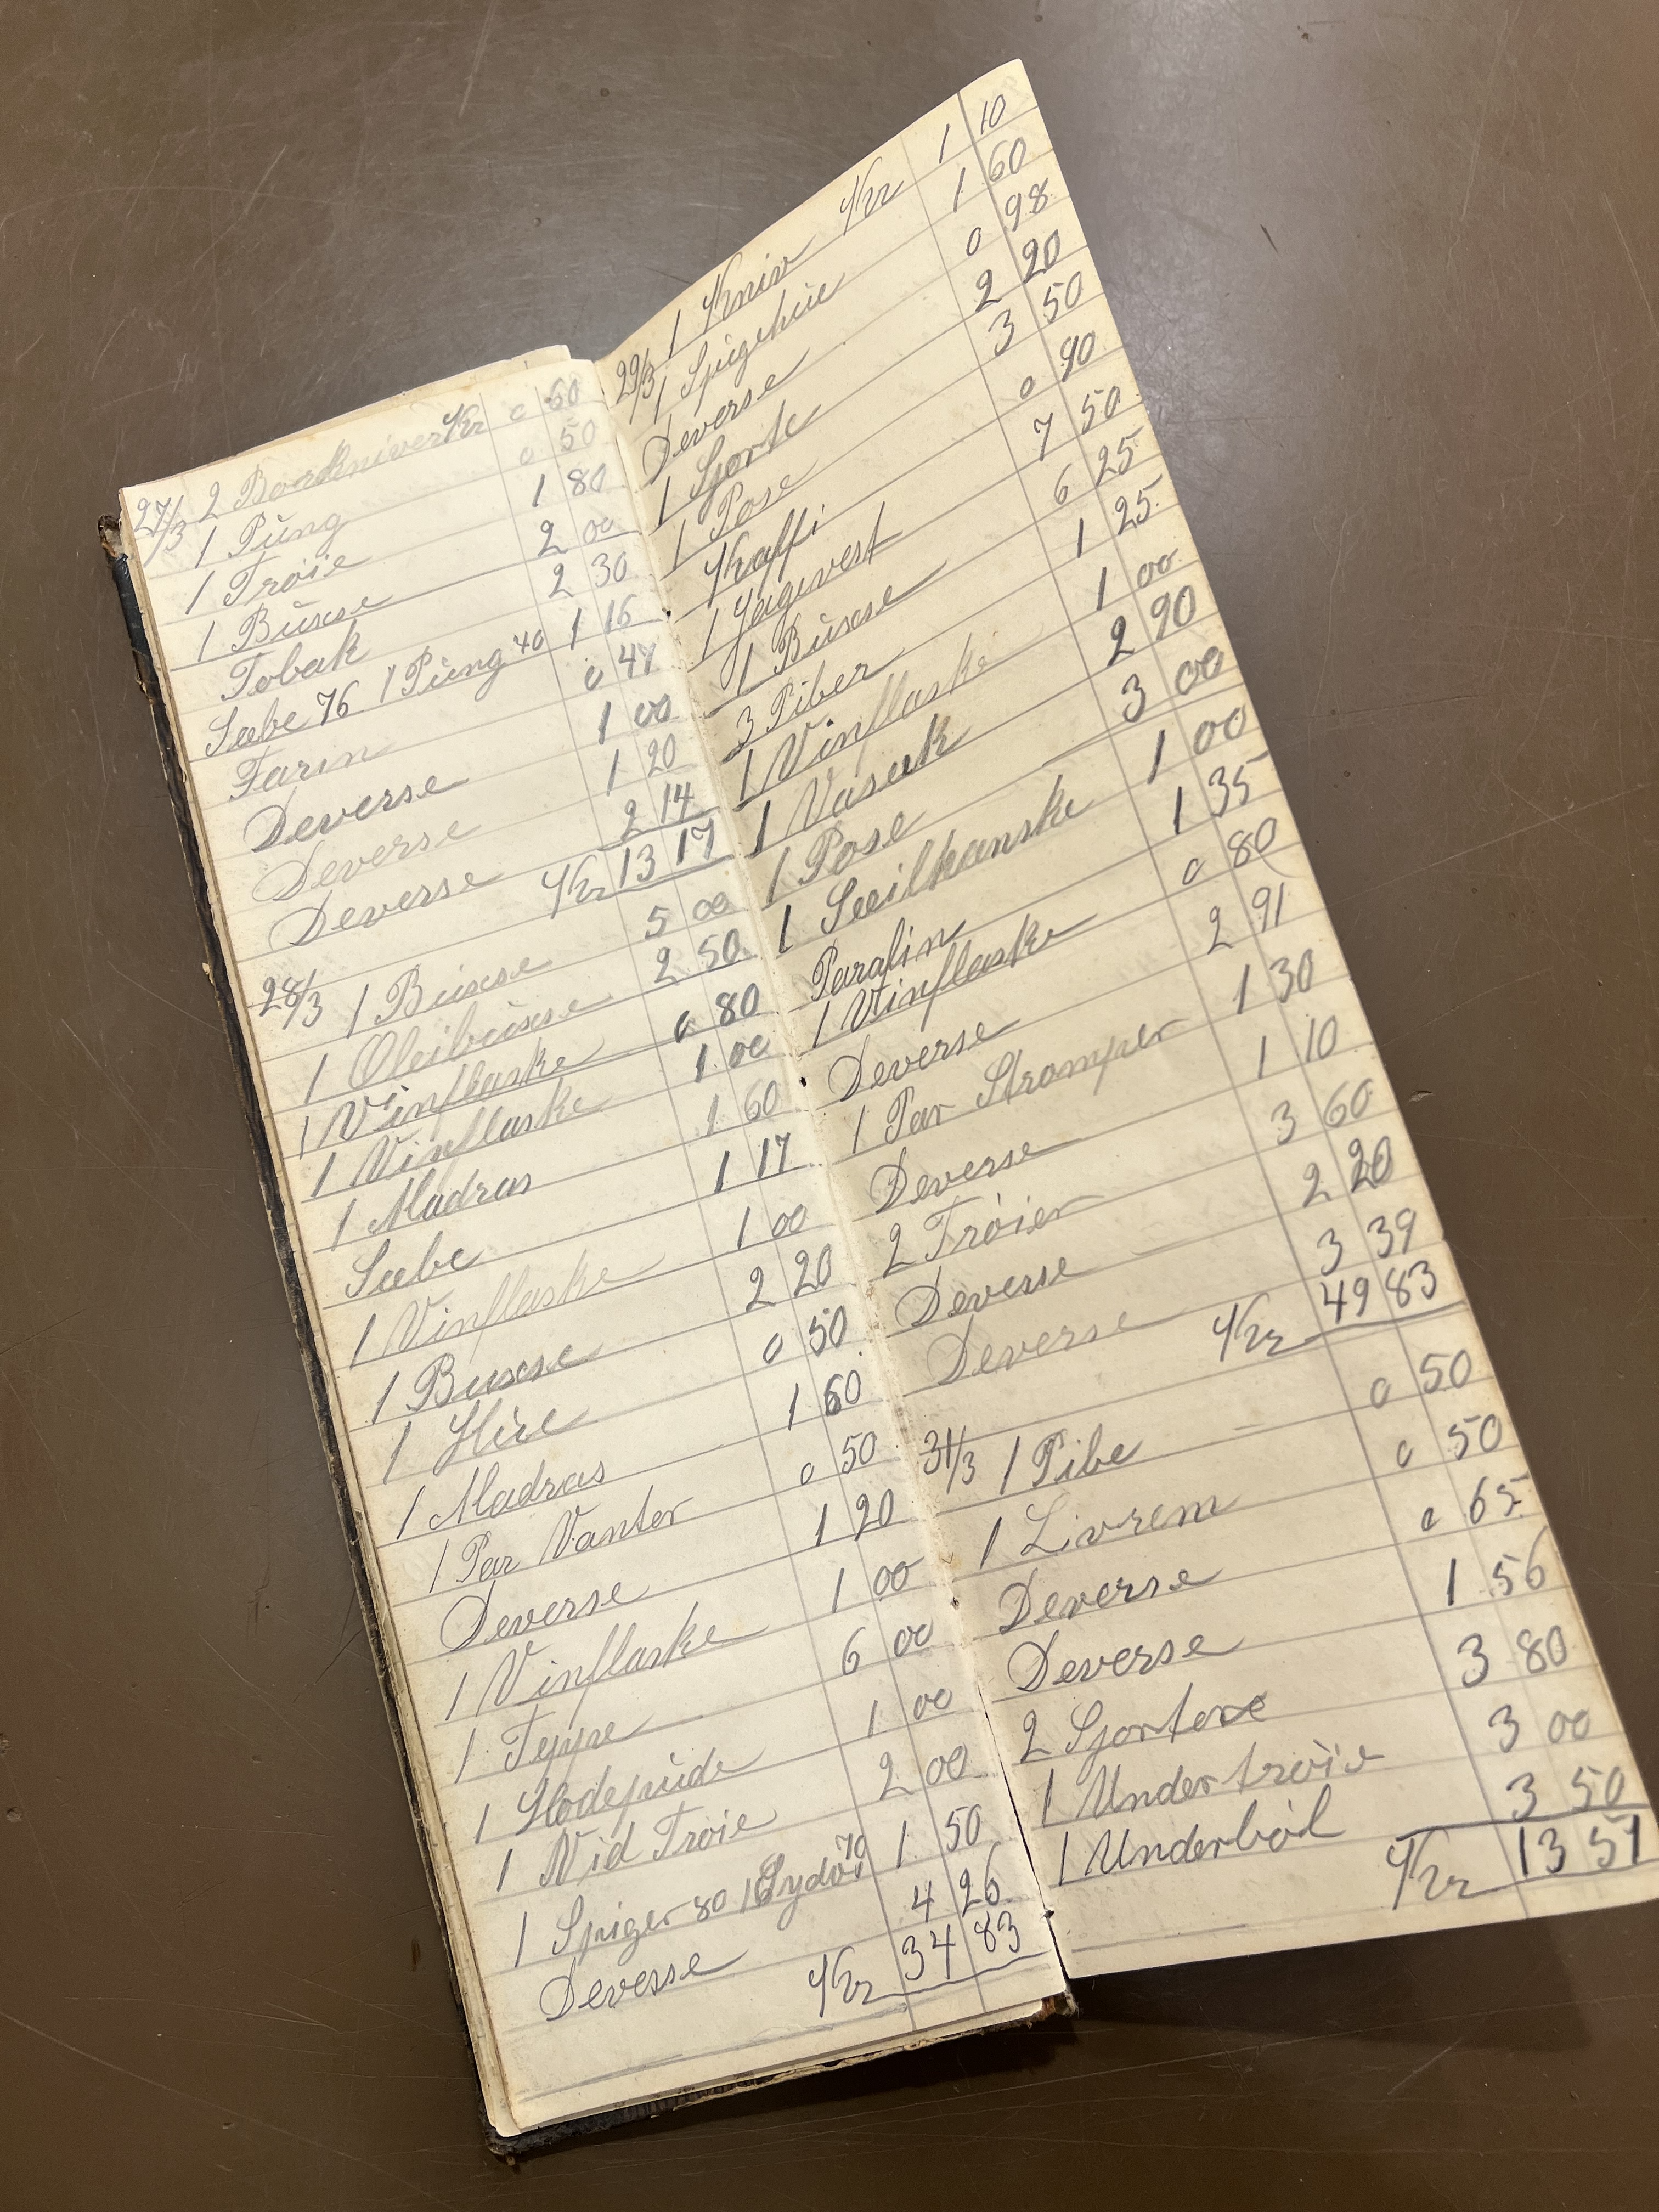 27/3 2 Bordkniver Kr 0 60
1 Püng 0 50
1 Trøie 1 80
1 Büxse 2 00
Tobak 2 30
Sæbe 76 1 Püng 40 1 16
Farin 0 47
Deverse 1 00
Deverse 1 20
Deverse 2 14
Kr 13 17
28/3 1 Buxse 5 00
1 Oleibüxse 2 50
1 Vinflaske 0 80
1 Vinflaske 1 00
1 Madras 1 60
Sæbe 1 17
1 Vinflaske 1 00
1 Buxse 2 20
1 Hüe 0 50
1 Madras 1 60
1 Par Vanter 0 50
Deverse 1 20
1 Vinflaske 1 00
1 Teppe 6 00
1 Hodepüde 1 00
1 Vid Trøie 2 00
1 Spiger 80 1 70 1 50
Deverse 4 26
Kr 34 83
29/3 1 Kniv Kr 1 10
1 Spigehüe 1 60
Deverse 0 98
1 Sjorte 2 20
1 Pose 3 50
Kaffi 0 90
1 Jagevest 7 50
1 Büxse 6 25
3 Piber 1 25
1 Vinflaske 1 00
1 Vasæk 2 90
1 Pose 3 00
1 Seeilhanske 1 00
Parafin 1 35
1 Vinflaske 0 80
Deverse 2 91
1 Par Strømper 1 30
Deverse 1 10
2 Trøier 3 60
Deverse 2 20
Deverse 3 39
Kr 49 83
31/3 1 Pibe 0 50
1 Livrem 0 50
Deverse 0 65
Deverse 1 56
2 Sjorter 3 80
1 Undertrøie 3 00
1 Underból 3 50
Kr 13 51